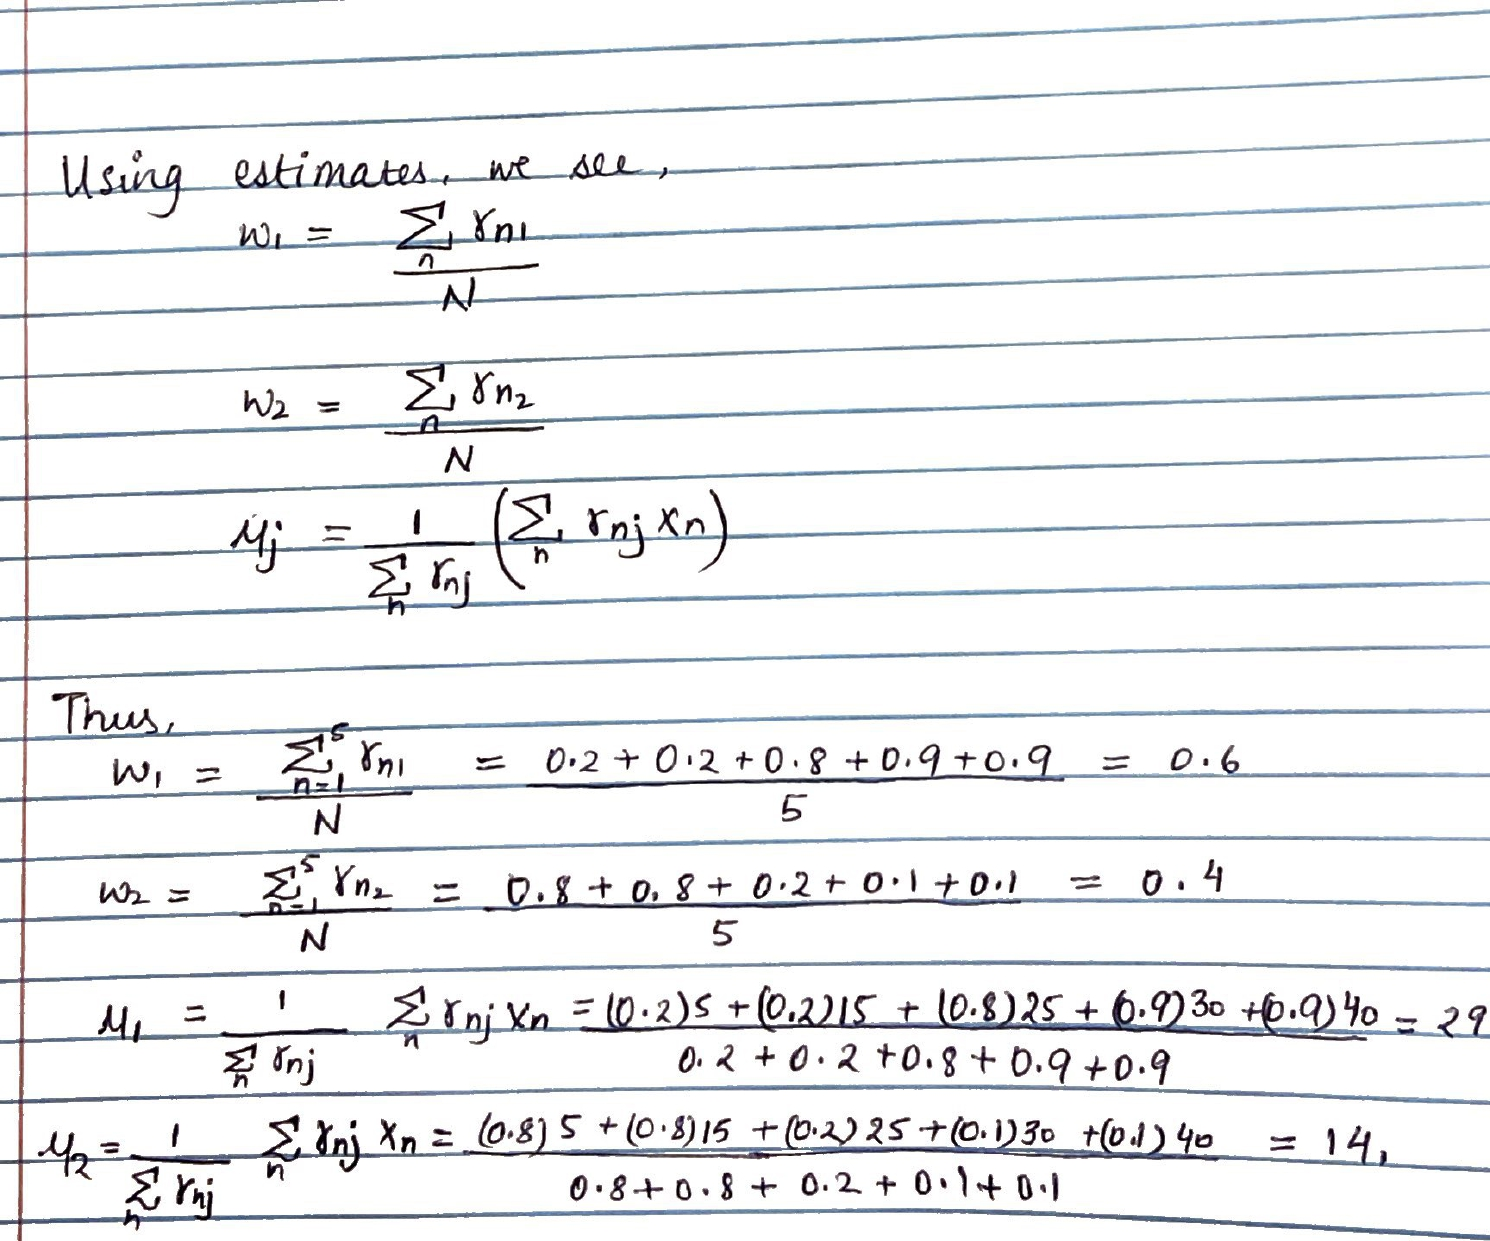 Using estimates, we see,
w₁ = Σₙ γₙ₁ / N
w₂ = Σₙ γₙ₂ / N
μⱼ = 1 / Σₙ γₙⱼ (Σₙ γₙⱼ xₙ)
Thus,
w₁ = Σₙ₌₁⁵ γₙ₁ / N = 0.2 + 0.2 + 0.8 + 0.9 + 0.9 / 5 = 0.6
w₂ = Σₙ₌₁⁵ γₙ₂ / N = 0.8 + 0.8 + 0.2 + 0.1 + 0.1 / 5 = 0.4
μ₁ = 1 / Σₙ γₙⱼ Σₙ γₙⱼ xₙ = (0.2)5 + (0.2)15 + (0.8)25 + (0.9)30 + (0.9)40 / 0.2 + 0.2 + 0.8 + 0.9 + 0.9 = 29
μ₂ = 1 / Σₙ γₙⱼ Σₙ γₙⱼ xₙ = (0.8)5 + (0.8)15 + (0.2)25 + (0.1)30 + (0.1)40 / 0.8 + 0.8 + 0.2 + 0.1 + 0.1 = 14,